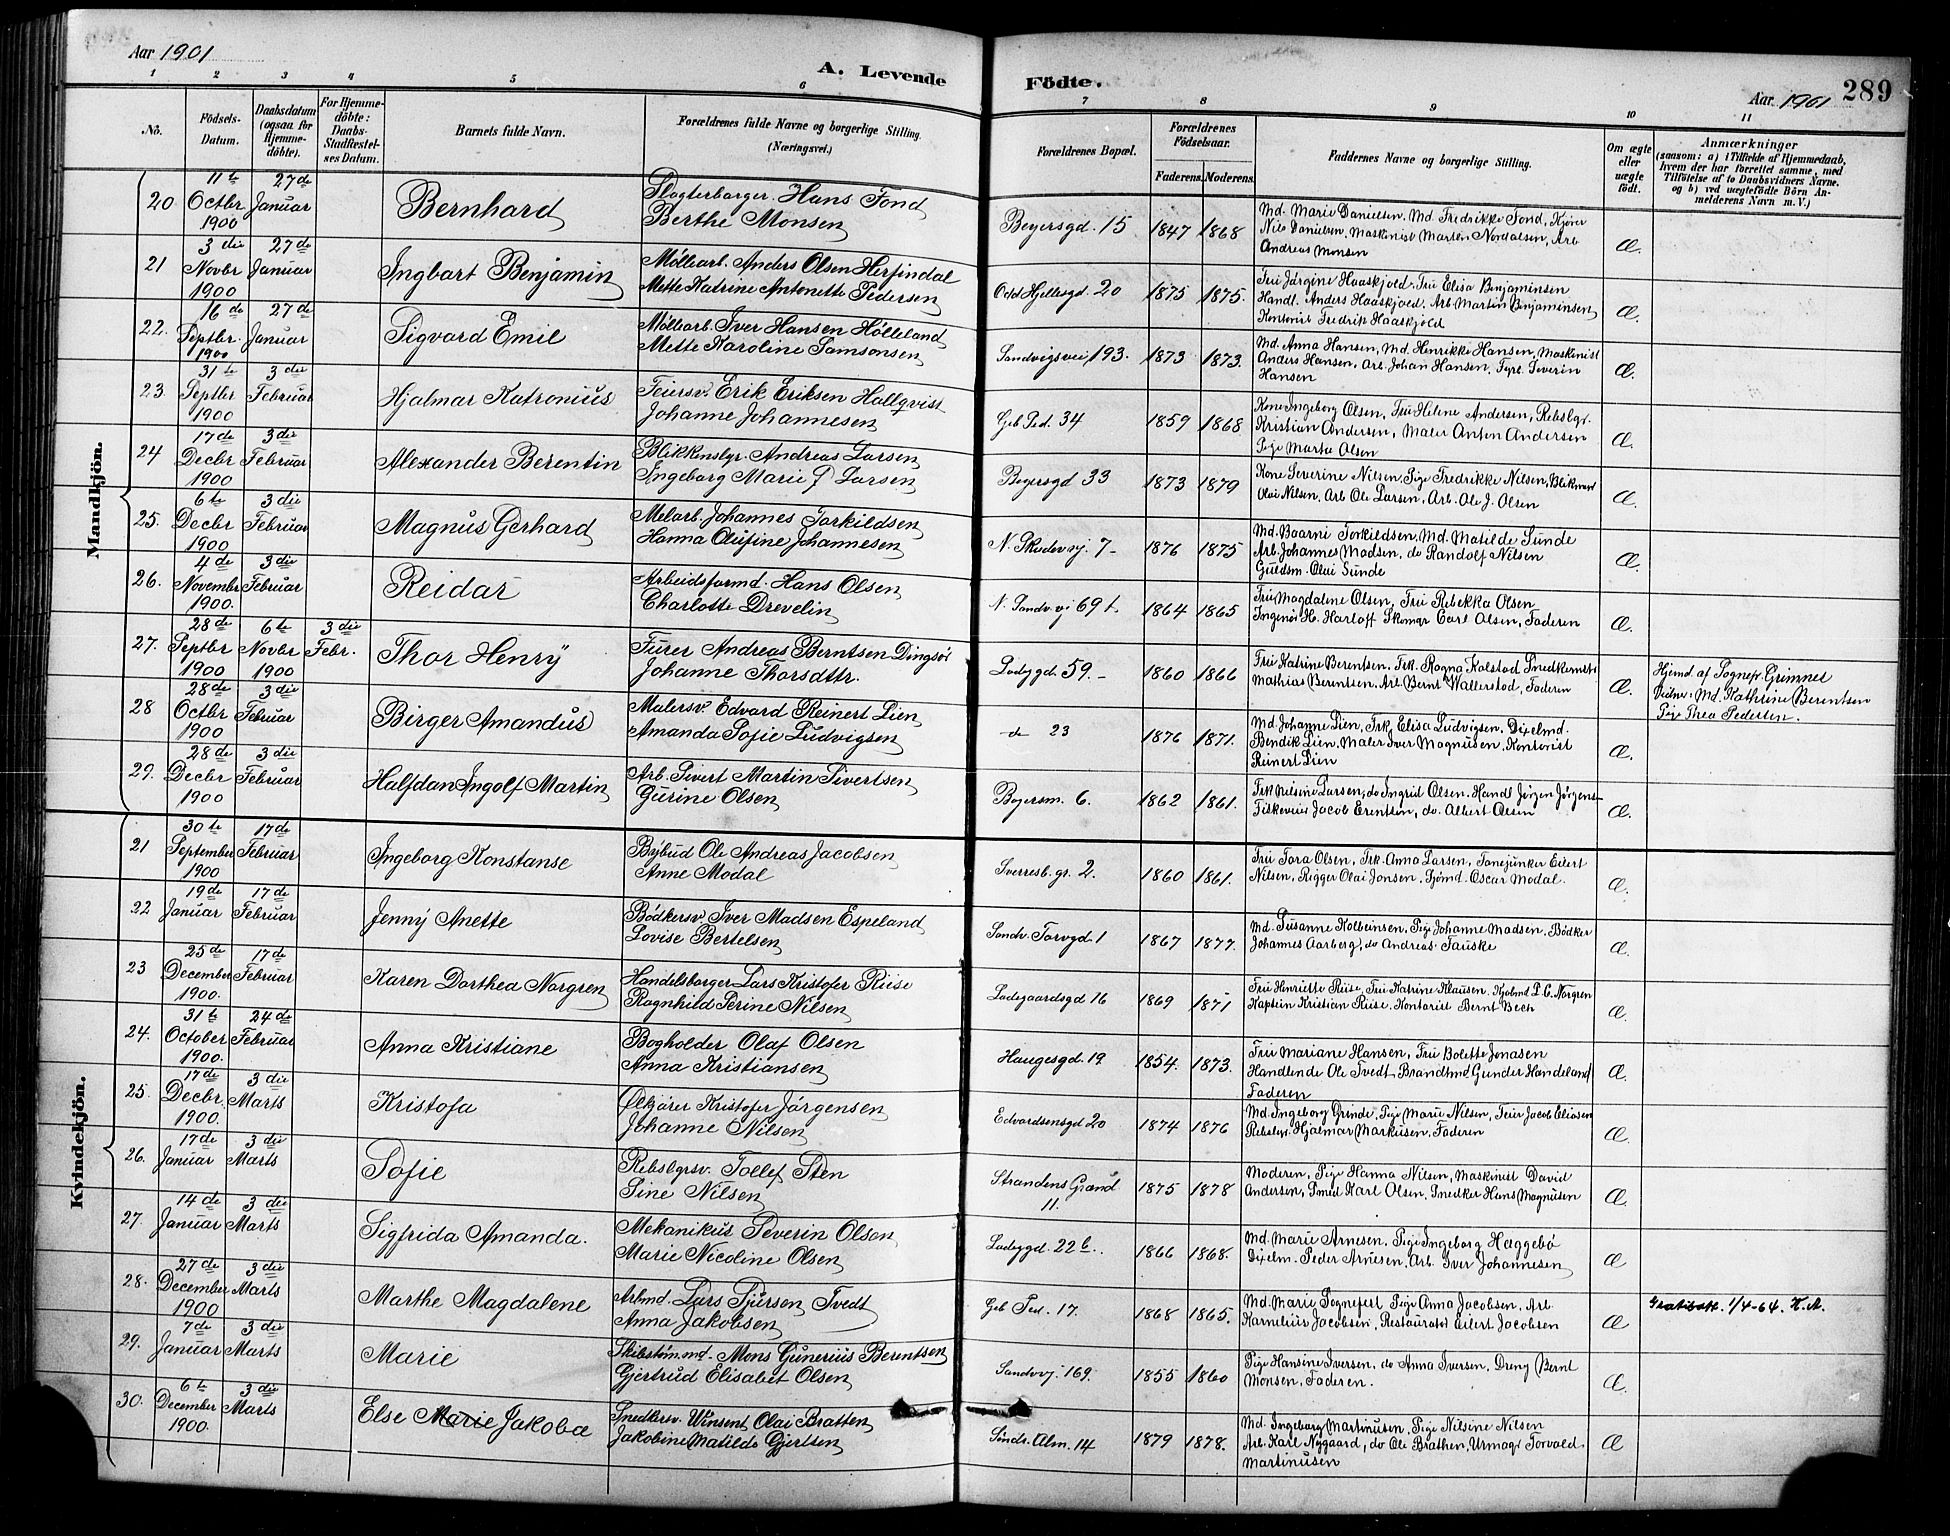 Aar 1901
A. Levende Födte.
Aar 1901
289
1 2 3 4 5 6 7 8 9 10 11
No.
Födsels-Datum.
Daabsdatum (ogsaa for Hjemme-döbte).
For Hjemme-döbte: Daabs-Stadfæstel-ses Datum.
Barnets fulde Navn.
Forældrenes fulde Navne og borgerlige Stilling. (Næringsvei.)
Forældrenes Bopæl.
Forældrenes Födselsaar.
Faderens. Moderens.
Faddernes Navne og borgerlige Stilling.
Om ægte eller uægte födt.
Anmærkninger
(saasom: a) i Tilfælde af Hjemmedaab, hvem der har forrettet samme, med Tilföielse af to Daabsvidners Navne, og b) ved uægtefödte Börn An-melderens Navn m. V.)
Mandkjön.
20 11te Octbr 1900 27de Januar Bernhard
Slagterborger Hans Tond
Berthe Monsen
Beyersgd. 15 1847 1868
Md. Marie Danielsen, Md. Fredrikke Tond, Kjører
Nils Danielsen, Maskinist Marten Nordalsen, Arb
Andreas Monsen
Æ.
21 3die Novbr 1900 27de Januar Ingbart Benjamin
Møllearb. Anders Olsen Herfindal
Mette Katrine Antonette Pedersen
Odd Hjellesgd. 20 1875 1875.
Fru Jørgine Haaskjold, Fru Elisa Benjaminsen
Handl. Anders Haaskjold, Arb. Martin Benjaminsen,
Kontorist Fredrik Haaskjold
Æ.
22. 16de Septbr. 1900 27de Januar Sigvard Emil
Møllearb. Iver Hansen Hölleland
Mette Karoline Samsonsen
Sandvigsvei 193. 1873 1873.
Md. Anna Hansen, Md. Henrikke Hansen, Maskinist
Anders Hansen, Arb. Johan Hansen, Fyrb. Severin
Hansen
Æ.
23 31te Septbr 1900 3die Februar Hjalmar Katronius
Feiersv. Erik Eriksen Hallqvist
Johanne Johannesen
Geb Ped. 34 1859 1868
Kone Ingeborg Olsen, Fru Helene Andersen, Rebslgr.
Kristian Andersen, Maler Anton Andersen
Pige Marta Olsen
Æ.
24 17de Decbr 1900 3die Februar Alexander Berentin
Blikkenslgr. Andreas Larsen
Ingeborg Marie Larsen
Beyersgd 33 1873 1879
Kone Severine Nilsen, Pige Fredrikke Nilsen,
Olai Nilsen, Arb Ole Larsen, Arb. Ole J. Olsen
Æ.
25. 6te Decbr 1900 3die Februar Magnus Gerhard
Melarb. Johannes Torkildsen
Hanna Olufine Johannesen
N. Skudevvj. 7 1876 1875
Md. Baarni Torkildsen, Md. Matilde Sunde
Arb. Johannes Madsen, do Randolf Nilsen
Guldsm. Olai Sunde
Æ.
26. 4de November 1900. 3die Februar Reidar
Arbeidsformd. Hans Olsen
Charlotte Drevelin
N. Sandv.vj 69 1864 1865
Fru Magdalene Olsen, Fru Rebekka Olsen
Ingeniör H. Harloff Skomgr Carl Olsen, Faderen
Æ.
27. 28de Septbr 1900 6te Novbr 1900 3die Febr. Thor Henry
Furer Andreas Berntsen Dingsör
Johanne Thorsdttr.
Ladegd. 59. 1860 1866
Fru Katrine Berentsen, Frk. Ragna Kolstad Snedkermstr
Mathias Berentsen, Arb. Bernt Wallerstad, Faderen
Æ.
Hjemd. af Sognepr. Grimnes
Vidne: Md. Kathrine Berentsen
Pige Thea Pedersen.
28 28de Octbr 1900 3die Februar Birger Amandus
Malersv. Edvard Reinert Lien
Amanda Sofie Ludvigsen
do 23 1876 1871.
Md. Johanne Lien, Frk. Elisa Ludvigsen, Dixelmd.
Bendik Lien, Maler Iver Magnusen, Kontorist
Reinert Lien
Æ.
29. 28de Decbr 1900 3die Februar Halfdan Ingolf Martin
Arb. Sivert Martin Sivertsen
Gurine Olsen
Beyersm. 6. 1862 1861.
Frk Nilsine Larsen, do Ingrid Olsen, Handl Jörgen Jörgens-
Jacob Erentsen, do. Albert Olsen
Æ.
Kvindekjön.
21 30te September 1900 17de Februar Ingeborg Konstanse
Bybud Ole Andreas Jacobsen
Anne Modal
Sverresb.gr. 2. 1860 1861.
Fru Tora Olsen, Frk. Anna Larsen, Eilert
Nilsen, Rigger Olai Jonsen, Sjömd. Oscar Modal.
Æ.
22 19de Januar 17de Februar Jenny Anette
Bödkersv. Iver Madsen Espeland
Lovise Bertelsen
Sandv. Torvgd. 1 1867 1877.
Md. Susanne Kolbeinsen, Pige Johanne Madsen, Bödker
Johannes Aarberg, do Andreas Fauske
Æ.
23 25de December 1900. 17de Februar Karen Dorthea Norgren
Handelsborger Lars Kristofer Riise
Ragnhild Serine Nilsen
Ladegaardsgd 16 1869 1871
Fru Henriette Riise, Fru Katrine Klausen, Kjölmd L. C. Norgren
Kaptein Kristian Riise, Kontorist Bernt Bech
Æ.
24. 31te October 1900. 24de Februar Anna Kristiane
Bogholder Olaf Olsen
Anna Kristiansen
Haugesgd. 19 1854. 1873.
Fru Mariane Hansen, Fru Bolette Jonasen
Handlende Ole Tvedt, Brandtmd Gunder Handeland
Faderen
Æ.
25. 17de Decbr. 1900. 3die Marts Kristofa
Ölkjører Kristofer Jörgensen
Johanne Nilsen
Edvardsensgd 20 1874 1876
Md. Ingeborg Grinde, Pige Marie Nilsen, Feier Jacob Eliasen
Rebslgr. Hjalmar Markusen, Faderen
Æ.
26. 17de Januar 3die Marts Sofie
Rebslgrsv. Tollef Sten
Sine Nilsen
Strandens Grænd 11. 1875 1878
Moderen, Pige Hanna Nilsen, Maskinist David
Andersen, Smed Karl Olsen, Snedker Hans Magnusen
Æ.
27. 14de Januar 3die Marts Sigfrida Amanda.
Mekanikus Severin Olsen
Marie Nicoline Olsen
Ladegd. 22b. 1866 1868.
Md. Marie Arnesen, Pige Ingeborg Hæggebö
Dixelm. Peder Arnesen, Arb. Iver Johannesen
Æ
28. 27de December 1900 3die Marts Marthe Magdalene
Arbmd. Lars Sjursen Tvedt
Anna Jakobsen
Geb Ped. 17. 1868 1865.
Md. Marie Sognefest Pige Anna Jacobsen, Arb.
Karnelius Jacobsen, Restauratör Eilert Jacobsen
Æ
Gratisatt. 1/4-64. K.A.
29. 7de Januar 3die Marts Marie
Skibstømmd. Mons Gunerius Berentsen
Gjertrud Elisabet Olsen
Sandvvj. 169. 1855 1860
Pige Hansine Iversen, do Anna Iversen, Dreng Bernt
Monsen, Faderen.
Æ.
30. 6te December 1900. 3die Marts Else Marie Jakoba
Snedkersv. Vinsent Olai Bratten
Jakobine Matilde Gjertsen
Söndr. Alm. 14 1879 1878.
Md. Ingeborg Martinusen, Pige Nilsine Nilsen
Arb. Karl Nygaard, do Ole Brathen, Urmagr Torvald
Martinusen
Æ